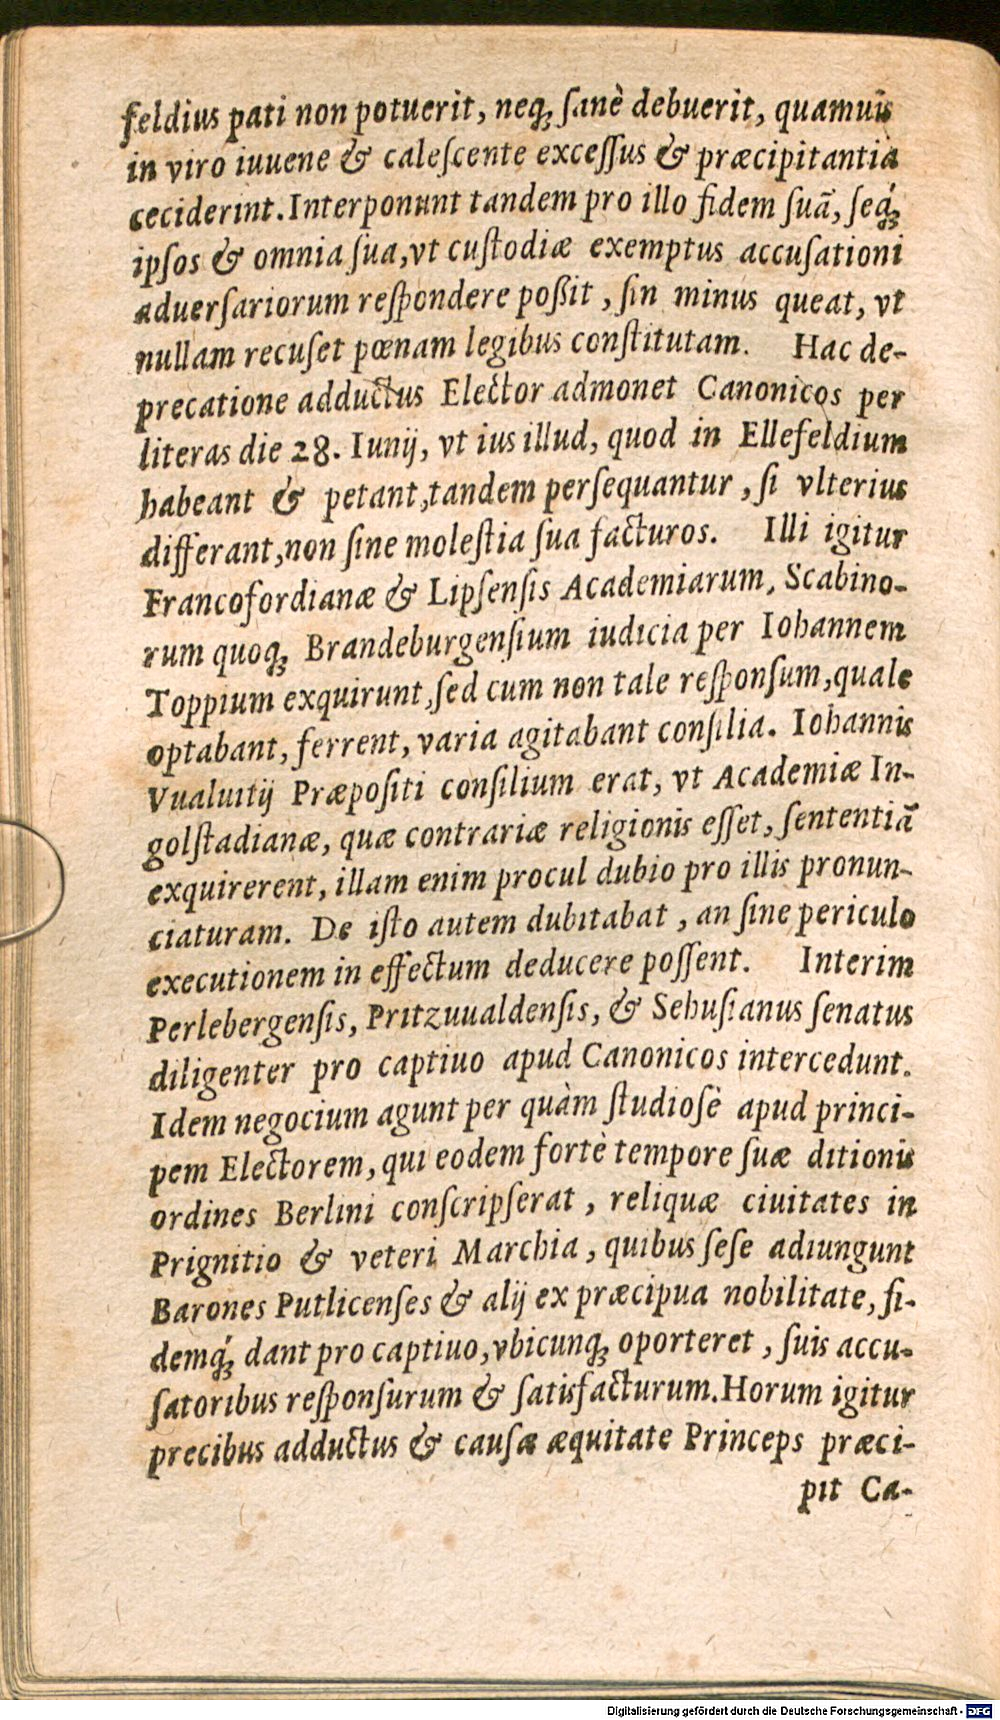 feldius pati non potuerit, neq́; ſanè debuerit, quamuis
in viro iuuene & caleſcente exceſſus & præcipitantia
ceciderint. Interponunt tandem pro illo fidem ſuã, ſeq́;
ipſos & omnia ſua, vt cuſtodiæ exemptus accuſationi
aduerſariorum reſpondere poßit, ſin minus queat, vt
nullam recuſet pœnam legibus conſtitutam. Hac de-
precatione adductus Elector admonet Canonicos per
literas die 28. Iunij, vt ius illud, quod in Ellefeldium
habeant & petant, tandem perſequantur, ſi vlterius
differant, non ſine moleſtia ſua facturos. Illi igitur
Francofordianæ & Lipſenſis Academiarum, Scabino-
rum quoq; Brandeburgenſium iudicia per Iohannem
Toppium exquirunt, ſed cum non tale reſponſum, quale
optabant, ferrent, varia agitabant conſilia. Iohannis
Vualuitij Præpoſiti conſilium erat, vt Academiæ In-
golſtadianæ, quæ contrariæ religionis eſſet, ſententiã
exquirerent, illam enim procul dubio pro illis pronun-
ciaturam. De iſto autem dubitabat, an ſine periculo
executionem in effectum deducere poſſent. Interim
Perlebergenſis, Pritzuualdenſis, & Sehuſianus ſenatus
diligenter pro captiuo apud Canonicos intercedunt.
Idem negocium agunt per quàm ſtudioſè apud princi-
pem Electorem, qui eodem fortè tempore ſuæ ditionis
ordines Berlini conſcripſerat, reliquæ ciuitates in
Prignitio & veteri Marchia, quibus ſeſe adiungunt
Barones Putlicenſes & alij ex præcipua nobilitate, fi-
demq́; dant pro captiuo, vbicunq; oporteret, ſuis accu-
ſatoribus reſponſurum & ſatisfacturum. Horum igitur
precibus adductus & cauſæ æquitate Princeps præci-
pit Ca-
Digitalisierung gefördert durch die Deutsche Forschungsgemeinschaft - DFG